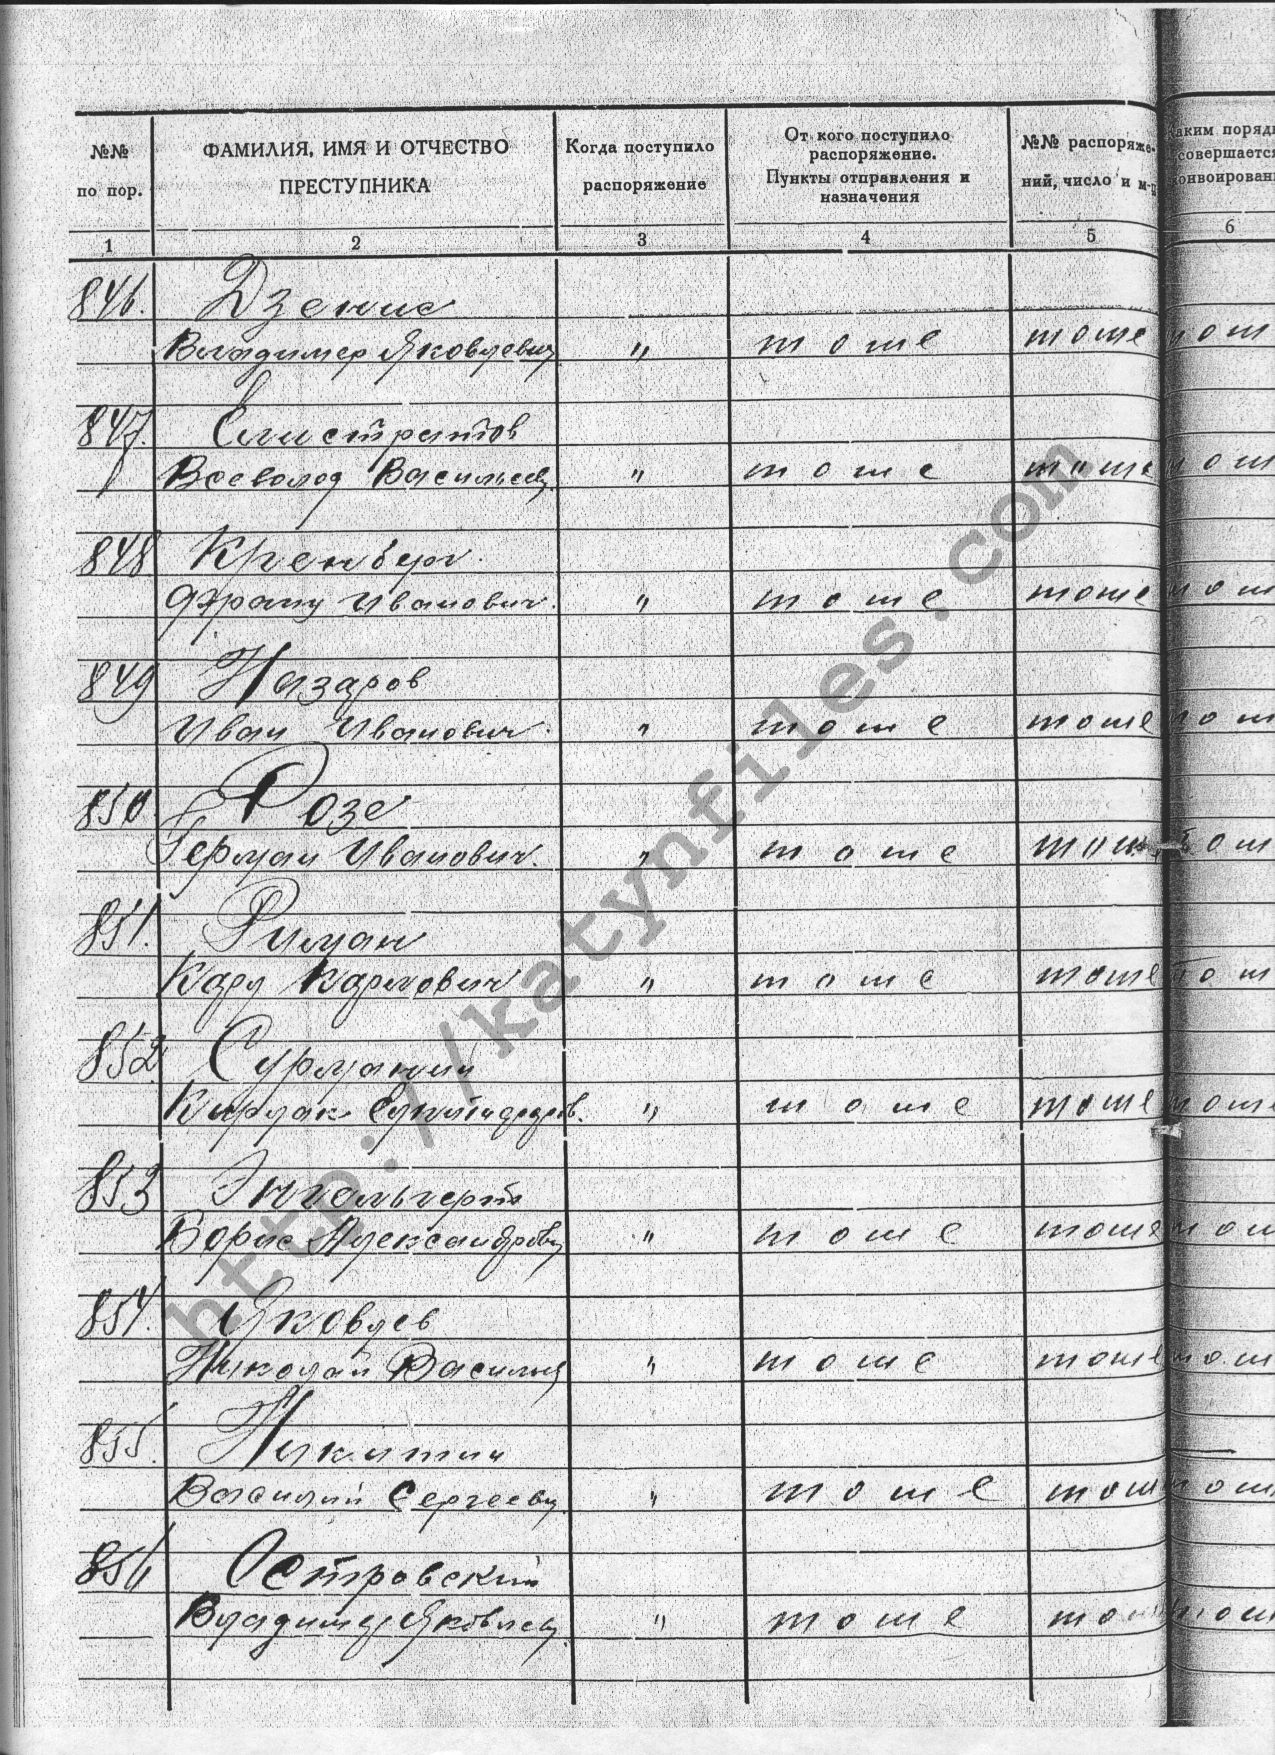 №№ по пор.
ФАМИЛИЯ, ИМЯ И ОТЧЕСТВО ПРЕСТУПНИКА
Когда поступило распоряжение
От кого поступило распоряжение. Пункты отправления и назначения
№№ распоряжений, число и м-ц
аким поряд совершается онвоирован
1 2 3 4 5 6
846. Дзенис
Владимир Яковлевич " тоже тоже тож
847. Елистратов
Всеволод Васильев. " тоже тоже тож
848
Иванович. " тоже тоже тож
849 Назаров
Иван Иванович. " тоже тоже тож
850 Розе
Герман Иванович. " тоже тож тож
851. Риман
Карл Карлович " тоже тоже тож
852
" тоже тоже тоже
853 Энгельгерт
Борис Александрович " тоже тоже тож
854. Яковлев
Николай Василье " тоже тоже тож
855. Никитин
Василий Сергееви " тоже тож тож
856 Островский
Владимир Яковлев " тоже тож тож
http://katynfiles.com